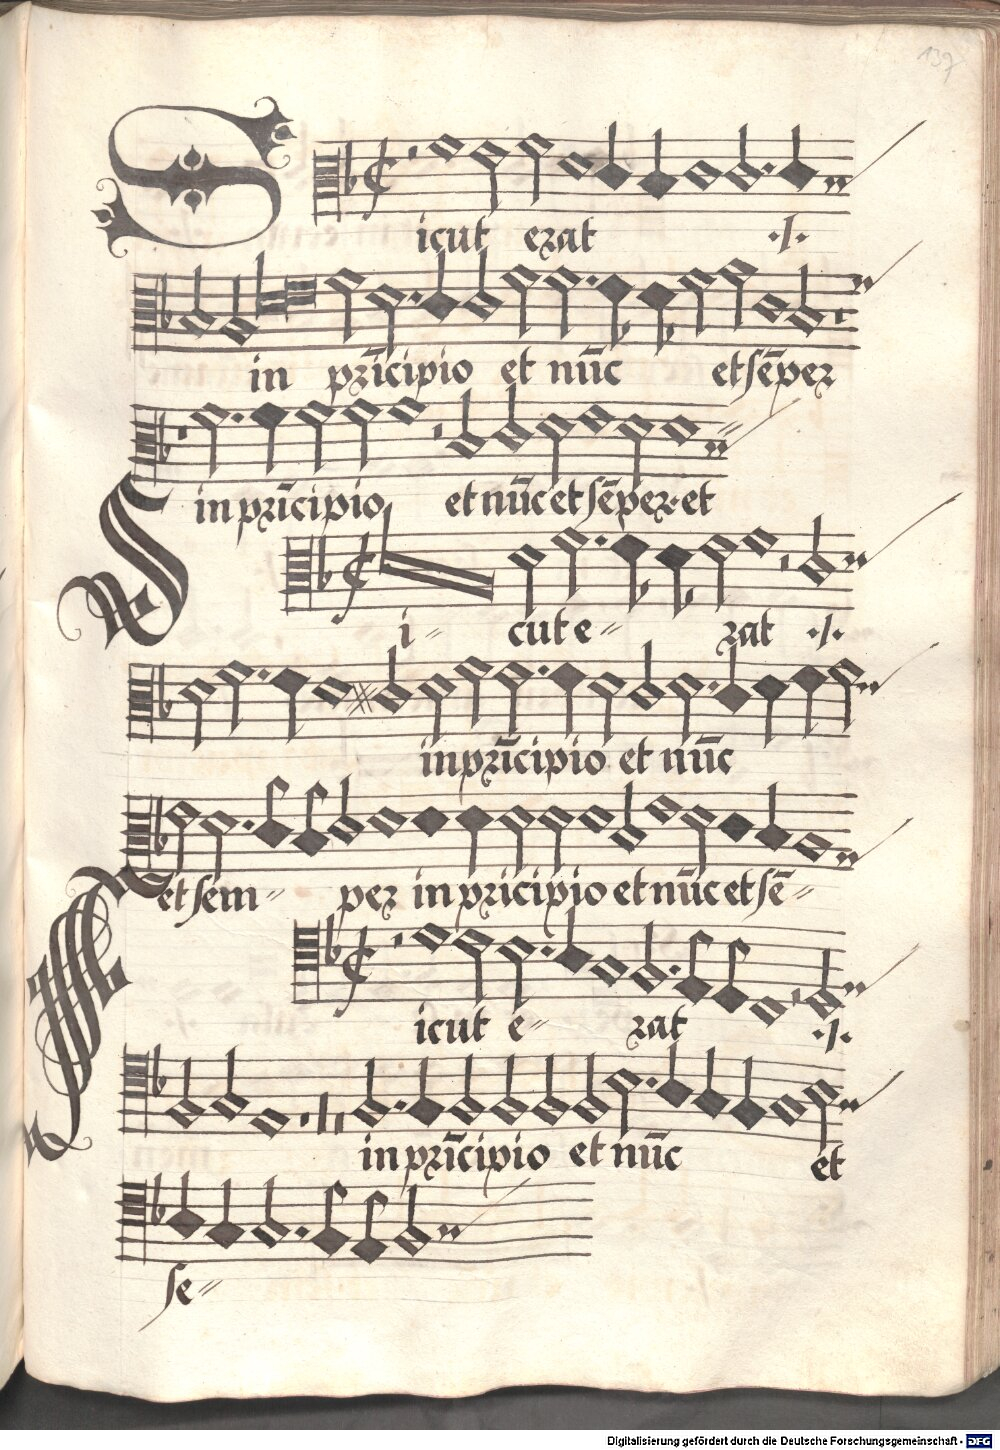 137
Sicut erat ·/·
in prīcipio et nūc et sēper
in prīcipio et nūc et sēper · et
Si〃 cut e〃 rat ·/·
in prīcipio et nūc
et sem〃 per in pricipio et nūc et sē〃
Sicut e〃 rat ·/·
in prīcipio et nūc et
se〃
Digitalisierung gefördert durch die Deutsche Forschungsgemeinschaft - DFG